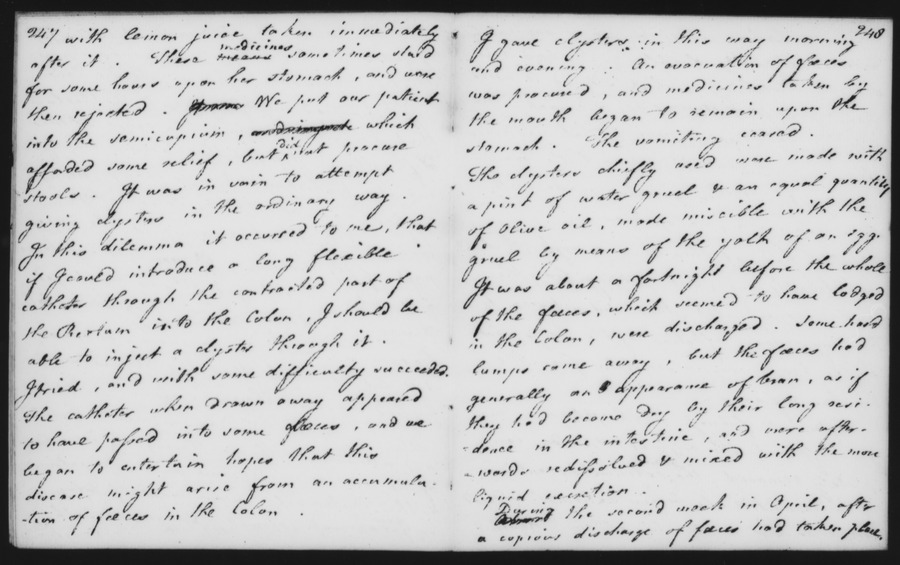 247 with lemon juice taken immediately
after it. These medicines means sometimes staid
for some hours upon her stomach, and were
then rejected. We put our patient
into the semicupium, which
afforded some relief, but did not procure
stools. It was in vain to attempt
giving clysters in the ordinary way.
In this dilemma it occurred to me, that
if I could introduce a long flexible
catheter through the contracted part of
the Rectum into the Colon, I should be
able to inject a clyster through it.
I tried, and with some difficulty succeeded.
The catheter when drawn away appeared
to have passed into some fæces, and we
began to entertain hopes that this
disease might arise from an accumula-
-tion of fæces in the Colon.
248
I gave clysters in this way morning
and evening. An evacuation of fæces
was procured, and medicines taken by
the mouth began to remain upon the
stomach. The vomiting ceased.
The clysters chiefly used were made with
a pint of water gruel & an equal quantity
of olive oil, made miscible with the
gruel by means of the yolk of an egg.
It was about a fortnight before the whole
of the fæces, which seemed to have lodged
in the Colon, were discharged. Some hard
lumps came away, but the fæces had
generally an appearance of bran, as if
they had become dry by their long resi-
-dence in the intestine, and were after-
-wards redissolved & mixed with the more
liquid secretion.
During the second week in April, after
a copious discharge of fæces had taken place,